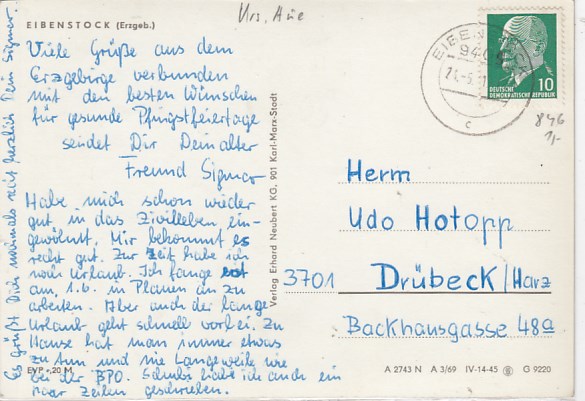 EIBENSTOCK (Erzgeb.)
Viele Grüße aus dem
Erzgebirge verbunden
mit den besten Wünschen
für gesunde Pfingstfeiertage
sendet Dir Dein alter
Freund Sigmar
Habe mich schon wieder
gut in das Zivilleben ein-
gewöhnt. Mir bekommt es
recht gut. Zur Zeit habe ich
noch Urlaub. Ich fange
am. 1.6. in Plauen an zu
arbeiten. Aber auch der lange
Urlaub geht schnell vorbei. Zu
Hause hat man immer etwas
zu tun und nie Langeweile wie
bei der BPO. habe ich auch ein
paar Zeilen geschrieben.
Es grüßt Dich nochmals recht herzlich Dein Sigmar.
EVP -,20 M
Verlag Erhard Neubert KG, 901 Karl-Marx-Stadt
Krs. Aue
DEUTSCHE
DEMOKRATISCHE REPUBLIK
10
846
1,-
Herrn
Udo Hotopp
3701 Drübeck/Harz
Backhausgasse 48a
A 2743 N A 3/69 IV-14-45 G 9220